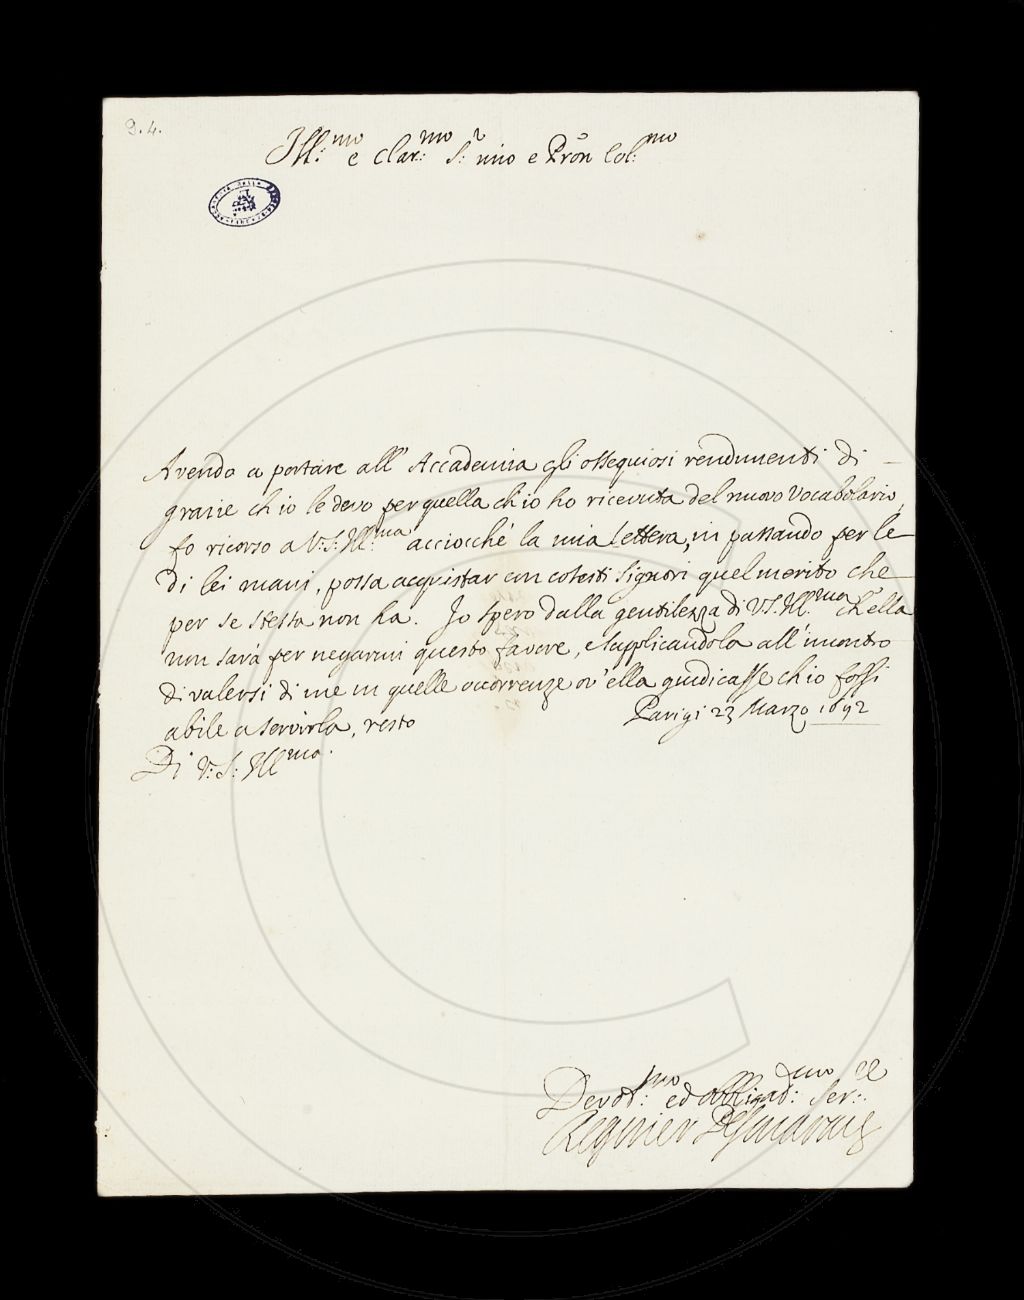 2.4.
Ill:mo e Clar:mo S:r mio e Pron Col:mo
Avendo a portare all' Accademia gli ossequiosi rendimenti di
grazie ch'io le devo per quella ch'io ho ricevuta del nuovo Vocabolario,
fo ricorso a V:S:Ill:ma acciocché la mia lettera, in passando per le
di lei mani, possa acquistar con cotesti Signori quel merito che
per se stessa non ha. Io spero dalla gentilezza di V.S.Ill:ma ch'ella
non sarà per negarmi questo favore, e supplicandola all'incontro
di valersi di me in quelle occorrenze ov'ella giudicasse ch'io fossi
abile a servirla, resto
Parigi 23 Marzo 1692
Di V:S: Ill:ma
Devot:mo ed obbligat:mo Ser:re
Regnier Desmarais